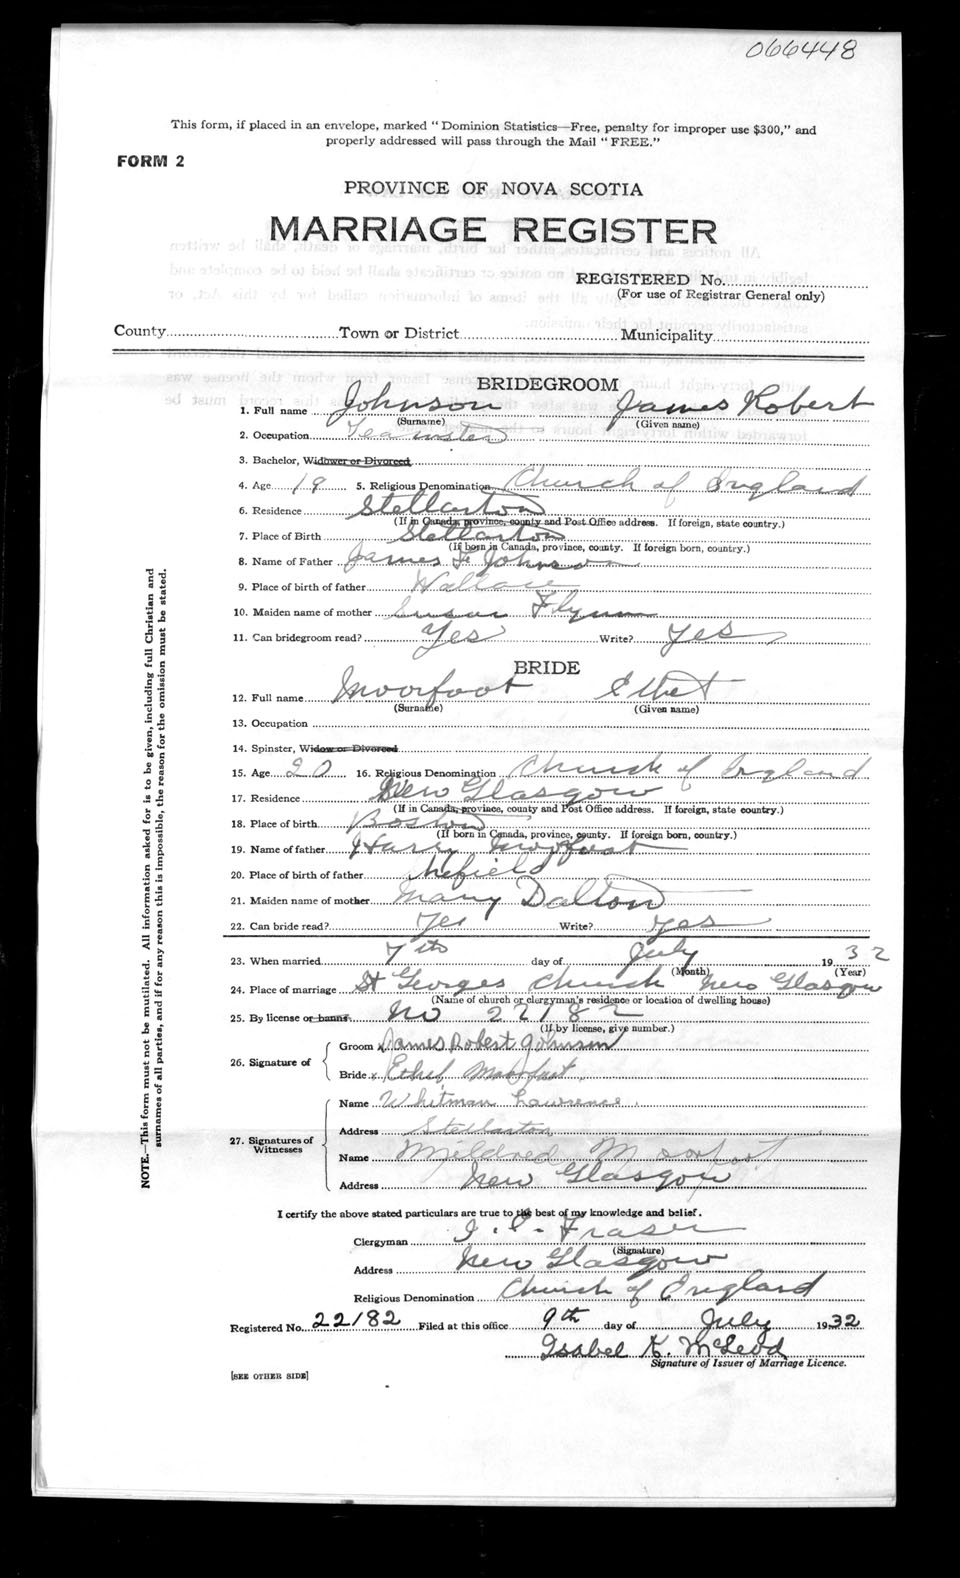 066448
This form, if placed in an envelope, marked "Dominion Statistics—Free, penalty for improper use $300," and
properly addressed will pass through the Mail "FREE."
FORM 2
PROVINCE OF NOVA SCOTIA
MARRIAGE REGISTER
REGISTERED No.
(For use of Registrar General only)
County Town or District Municipality
BRIDEGROOM
1. Full name Johnson James Robert
(Surname) (Given name)
2. Occupation Teamster
3. Bachelor, Widower or Divorced
4. Age 19 5. Religious Denomination Church of England
6. Residence Stellarton
(If in Canada, province, county and Post Office address. If foreign, state country.)
7. Place of Birth Stellarton
(If born in Canada, province, county. If foreign born, country.)
8. Name of Father James F Johnson
9. Place of birth of father Wallace
10. Maiden name of mother Susan Flynn
11. Can bridegroom read? Yes Write? Yes
BRIDE
12. Full name Moorfoot Ethel
(Surname) (Given name)
13. Occupation
14. Spinster, Widow or Divorced
15. Age 20 16. Religious Denomination Church of England
17. Residence New Glasgow
(If in Canada, province, county and Post Office address. If foreign, state country.)
18. Place of birth Boston
(If born in Canada, province, county. If foreign born, country.)
19. Name of father Harry Moorfoot
20. Place of birth of father
21. Maiden name of mother Mary Dalton
22. Can bride read? Yes Write? Yes
23. When married 7th day of July 1932
(Month) (Year)
24. Place of marriage St Georges Church New Glasgow
(Name of church or clergyman's residence or location of dwelling house)
25. By license or banns No 22182
(If by license, give number.)
26. Signature of
Groom x James Robert Johnson
Bride x Ethel Moorfoot
27. Signatures of Witnesses
Name Whitman Lawrence
Address Stellarton
Name Mildred Moorfoot
Address New Glasgow
I certify the above stated particulars are true to the best of my knowledge and belief.
Clergyman Fraser
(Signature)
Address New Glasgow
Religious Denomination Church of England
Registered No. 22182 Filed at this office 9th day of July 1932
Issbel K. McLeod
Signature of Issuer of Marriage Licence.
[SEE OTHER SIDE]
NOTE.—This form must not be mutilated. All information asked for is to be given, including full Christian and
surnames of all parties, and if for any reason this is impossible, the reason for the omission must be stated.